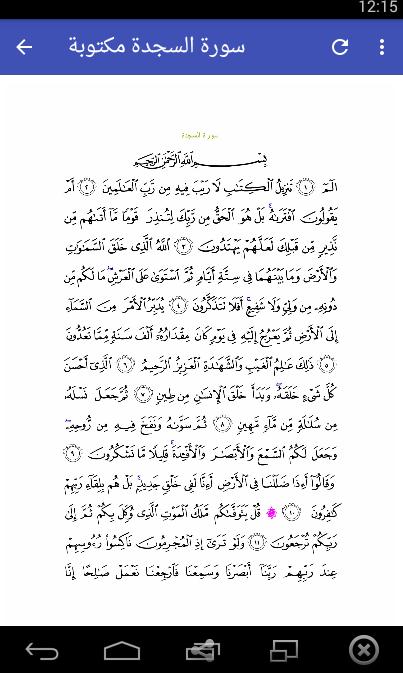 12:15
سورة السجدة مكتوبة
سورة السجدة
بِسْمِ ٱللَّهِ ٱلرَّحْمَٰنِ ٱلرَّحِيمِ
الٓمٓ ۝١ تَنزِيلُ ٱلْكِتَٰبِ لَا رَيْبَ فِيهِ مِن رَّبِّ ٱلْعَٰلَمِينَ ۝٢ أَمْ
يَقُولُونَ ٱفْتَرَىٰهُ ۚ بَلْ هُوَ ٱلْحَقُّ مِن رَّبِّكَ لِتُنذِرَ قَوْمًا مَّآ أَتَىٰهُم مِّن
نَّذِيرٍ مِّن قَبْلِكَ لَعَلَّهُمْ يَهْتَدُونَ ۝٣ ٱللَّهُ ٱلَّذِى خَلَقَ ٱلسَّمَٰوَٰتِ
وَٱلْأَرْضَ وَمَا بَيْنَهُمَا فِى سِتَّةِ أَيَّامٍ ثُمَّ ٱسْتَوَىٰ عَلَى ٱلْعَرْشِ ۖ مَا لَكُم مِّن
دُونِهِۦ مِن وَلِىٍّ وَلَا شَفِيعٍ ۚ أَفَلَا تَتَذَكَّرُونَ ۝٤ يُدَبِّرُ ٱلْأَمْرَ مِنَ ٱلسَّمَآءِ
إِلَى ٱلْأَرْضِ ثُمَّ يَعْرُجُ إِلَيْهِ فِى يَوْمٍ كَانَ مِقْدَارُهُۥٓ أَلْفَ سَنَةٍ مِّمَّا تَعُدُّونَ
۝٥ ذَٰلِكَ عَٰلِمُ ٱلْغَيْبِ وَٱلشَّهَٰدَةِ ٱلْعَزِيزُ ٱلرَّحِيمُ ۝٦ ٱلَّذِىٓ أَحْسَنَ
كُلَّ شَىْءٍ خَلَقَهُۥ ۖ وَبَدَأَ خَلْقَ ٱلْإِنسَٰنِ مِن طِينٍ ۝٧ ثُمَّ جَعَلَ نَسْلَهُۥ
مِن سُلَٰلَةٍ مِّن مَّآءٍ مَّهِينٍ ۝٨ ثُمَّ سَوَّىٰهُ وَنَفَخَ فِيهِ مِن رُّوحِهِۦ ۖ
وَجَعَلَ لَكُمُ ٱلسَّمْعَ وَٱلْأَبْصَٰرَ وَٱلْأَفْـِٔدَةَ ۚ قَلِيلًا مَّا تَشْكُرُونَ ۝٩
وَقَالُوٓا۟ أَءِذَا ضَلَلْنَا فِى ٱلْأَرْضِ أَءِنَّا لَفِى خَلْقٍ جَدِيدٍۭ ۚ بَلْ هُم بِلِقَآءِ رَبِّهِمْ
كَٰفِرُونَ ۝١٠ قُلْ يَتَوَفَّىٰكُم مَّلَكُ ٱلْمَوْتِ ٱلَّذِى وُكِّلَ بِكُمْ ثُمَّ إِلَىٰ
رَبِّكُمْ تُرْجَعُونَ ۝١١ وَلَوْ تَرَىٰٓ إِذِ ٱلْمُجْرِمُونَ نَاكِسُوا۟ رُءُوسِهِمْ
عِندَ رَبِّهِمْ رَبَّنَآ أَبْصَرْنَا وَسَمِعْنَا فَٱرْجِعْنَا نَعْمَلْ صَٰلِحًا إِنَّا